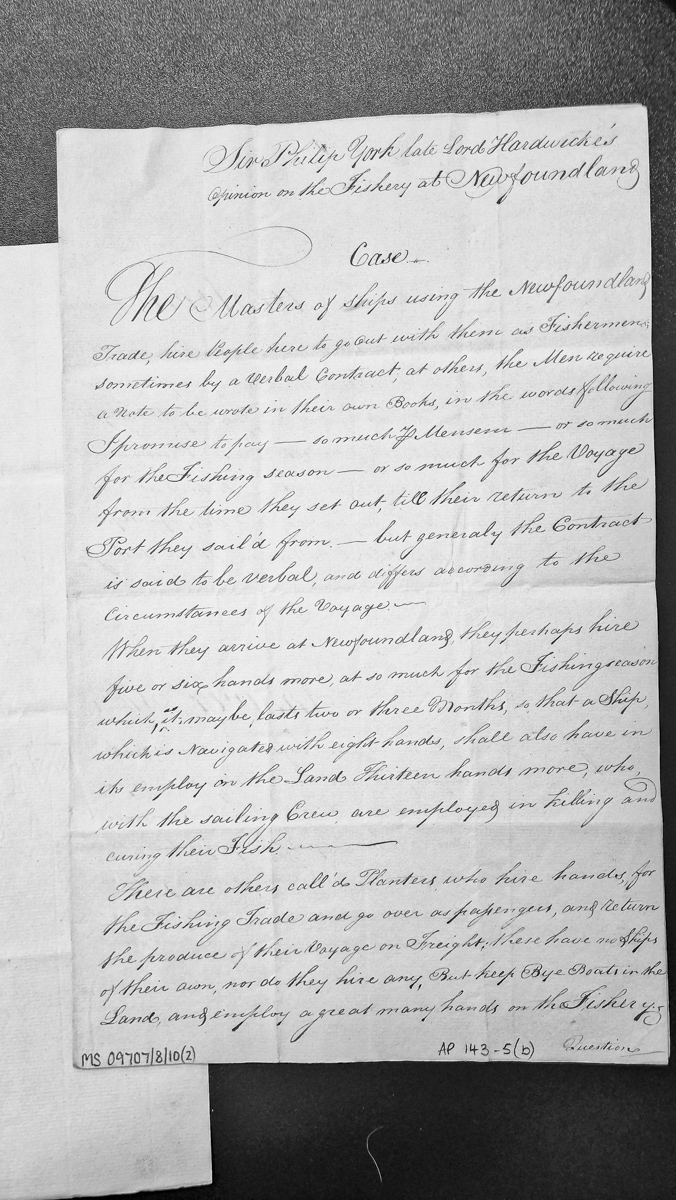 Sir Philip York late Lord Hardwicke's
Opinion on the Fishery at Newfoundland
Case
The Masters of ships using the Newfoundland
Trade, hire People here to go out with them as Fishermen;
sometimes by a Verbal Contract, at others, the Men require
a Note to be wrote in their own Books, in the words following
I promise to pay — so much ⅌ Mensem — or so much
for the Fishing season — or so much for the Voyage
from the time they set out, till their return to the
Port they sail'd from. — but generaly the Contract
is said to be verbal, and differs according to the
Circumstances of the Voyage. —
When they arrive at Newfoundland, they perhaps hire
five or six hands more, at so much for the Fishing season
which, as it may be, lasts two or three Months, so that a Ship,
which is Navigated with eight hands, shall also have in
its employ on the Land Thirteen hands more, who,
with the sailing Crew are employed in killing and
curing their Fish. —
There are others call'd Planters, who hire hands, for
the Fishing Trade and go over as passengers, and return
the produce of their Voyage on Freight; these have no Ships
of their own, nor do they hire any, But keep Bye Boats in the
Land, and employ a great many hands on the Fishery;
Question
MS 09707/8/10(2)
AP 143-5(b)